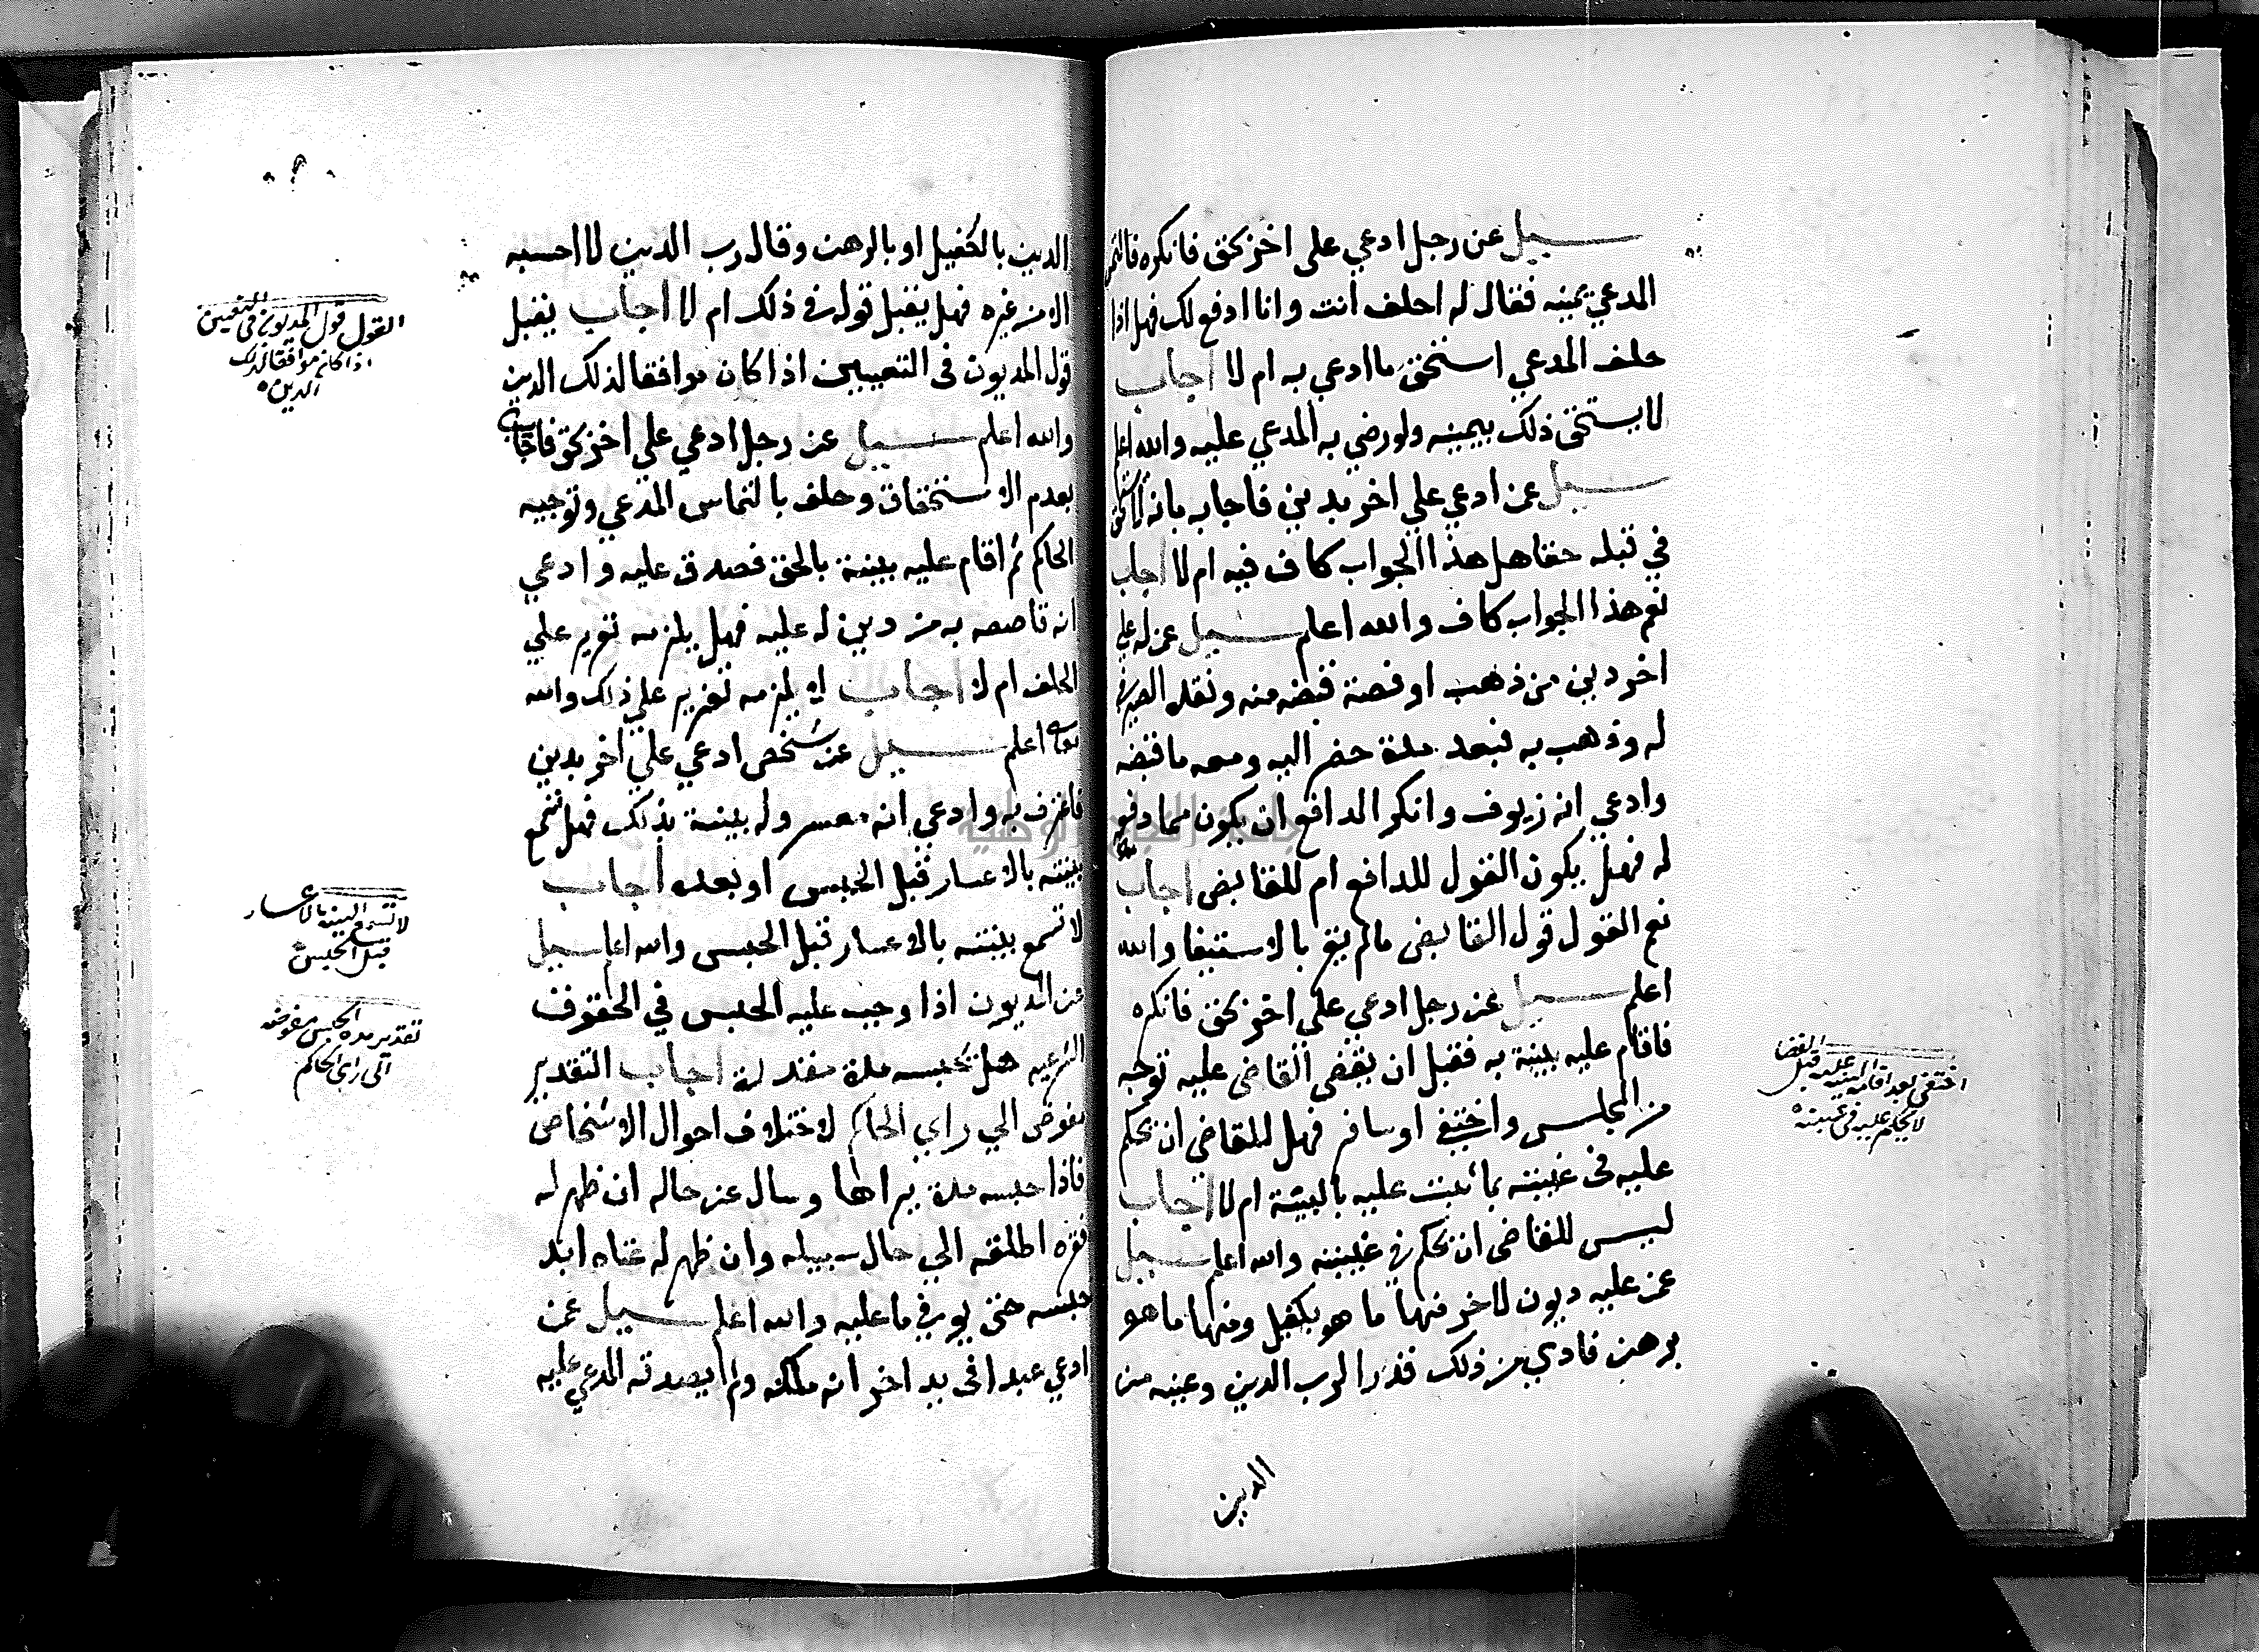 سيل عن رجل ادعي علي اخر بحق فانكره فالتمس
المدعي يمينه فقال له احلف انت وانا ادفع لك فهل اذا
حلف المدعي استحق ما ادعي به ام لا اجاب
لا يستحق ذلك بيمينه ولو رضي به المدعي عليه والله اعلم
سيل عمن ادعي علي اخر بدين فاجاب بانه لا يستحق
في قبله حقا هل هذا الجواب كاف فيه ام لا اجاب
نعم هذا الجواب كاف والله اعلم سيل عمن له علي
اخر دين من ذهب او فضة قبضه منه ونقده الصيرفي
له وذهب به فبعد مدة حضر اليه ومعه ما قبضه
وادعي انه زيوف وانكر الدافع ان يكون مما دفعه
له فهل يكون القول للدافع ام للقابض اجاب
نعم القول قول القابض ما لم يقر بالاستيفا والله
اعلم سيل عن رجل ادعي علي اخر بحق فانكره
فاقام عليه بينة به فقبل ان يقضي القاضي عليه توجه
من المجلس واختفي او سافر فهل للقاضي ان يحكم
عليه في غيبته بما ثبت عليه بالبينة ام لا اجاب
ليس للقاضي ان يحكم في غيبته والله اعلم سيل
عمن عليه ديون لاخر منها ما هو بكفيل ومنها ما هو
برهن فادي من ذلك قدرا لرب الدين وعينه من
الدين
اختفي بعد اقامة البينة عليه قبل القضا
لا يحكم عليه في غيبته
الدين بالكفيل او بالرهن وقال رب الدين لا احسبه
الا من غيره فهل يقبل قوله في ذلك ام لا اجاب يقبل
قول المديون في التعيين اذا كان موافقا لذلك الدين
والله اعلم سيل عن رجل ادعي علي اخر بحق فاجاب
بعدم الاستحقاق وحلف بالتماس المدعي وتوجيه
الحاكم ثم اقام عليه بينة بالحق فصدق عليه وادعي
انه قاصصه به من دين له عليه فهل يلزمه تعزير علي
الحلف ام لا اجاب لا يلزمه تعزير علي ذلك والله
تعالي اعلم سيل عن شخص ادعي علي اخر بدين
فاعترف به وادعي انه معسر وله بينة بذلك فهل تسمع
بينته بالاعسار قبل الحبس او بعده اجاب
لا تسمع بينته بالاعسار قبل الحبس والله اعلم سيل
عن المديون اذا وجب عليه الحبس في الحقوق
الشرعيه هل يحبسه مدة مقدرة اجاب التقدير
مفوض الي راي الحاكم لاختلاف احوال الاشخاص
فاذا حبسه مدة يراها وسال عن حاله ان ظهر له
فقره اطلقه الي حال سبيله وان ظهر له غناه ابد
حبسه حتي يوفي ما عليه والله اعلم سيل عمن
ادعي عبدا في يد اخر انه ملكه ولم يصدقه المدعي عليه
القول قول المديون في التعيين
اذا كان موافقا لذلك
الدين
لا تسمع البينة بالاعسار
قبل الحبس
تقدير مدة الحبس مفوضه
الي راي الحاكم